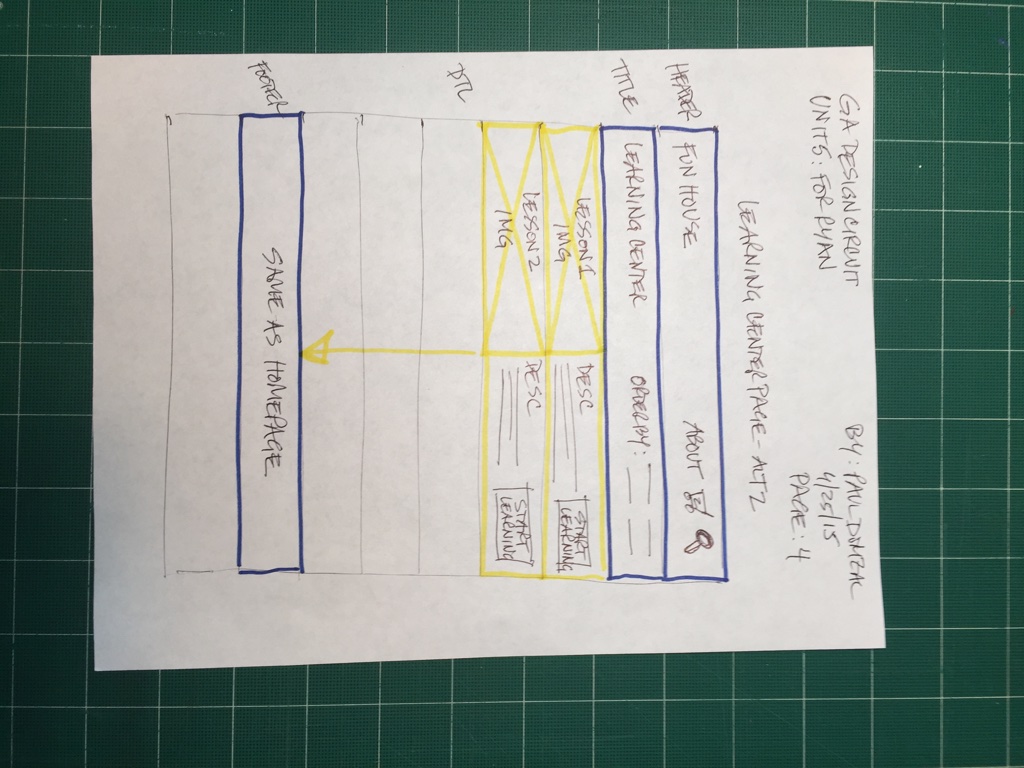 GA DESIGN CIRCUIT
UNIT 5: FOR RYAN
BY: PAUL
4/25/15
PAGE: 4
LEARNING CENTER PAGE - ALT 2
HEADER
FUN HOUSE
ABOUT
TITLE
LEARNING CENTER
ORDER BY:
LESSON 1
IMG
DESC
START
LEARNING
DTL
LESSON 2
IMG
DESC
START
LEARNING
FOOTER
SAME AS HOMEPAGE